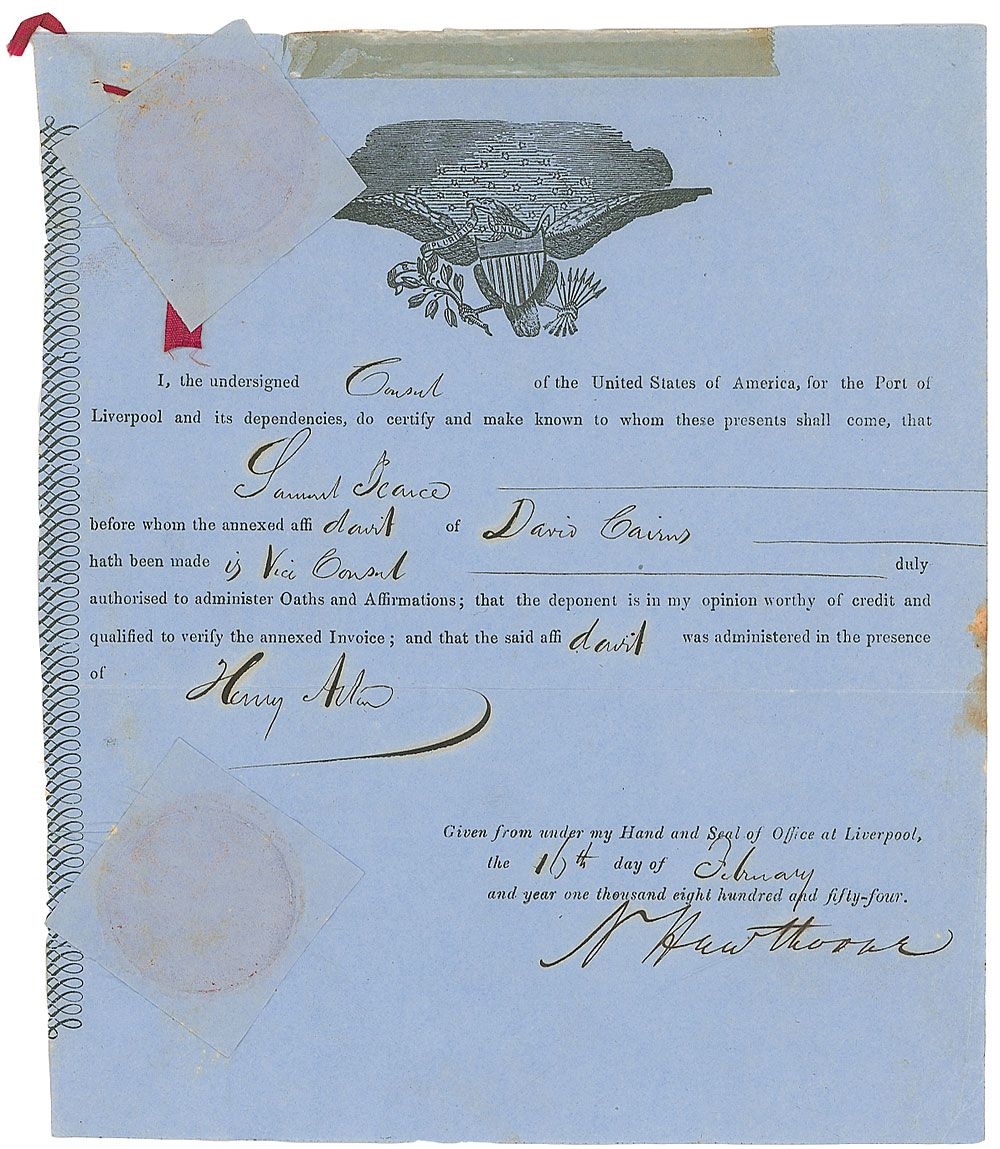 PLURIBUS UNUM
I, the undersigned Consul of the United States of America, for the Port of
Liverpool and its dependencies, do certify and make known to whom these presents shall come, that
Samuel Pearce
before whom the annexed affi davit of David Cairns
hath been made is Vice Consul duly
authorised to administer Oaths and Affirmations; that the deponent is in my opinion worthy of credit and
qualified to verify the annexed Invoice; and that the said affi davit was administered in the presence
of
Henry
Given from under my Hand and Seal of Office at Liverpool,
the th day of February
and year one thousand eight hundred and fifty-four.
N Hawthorne